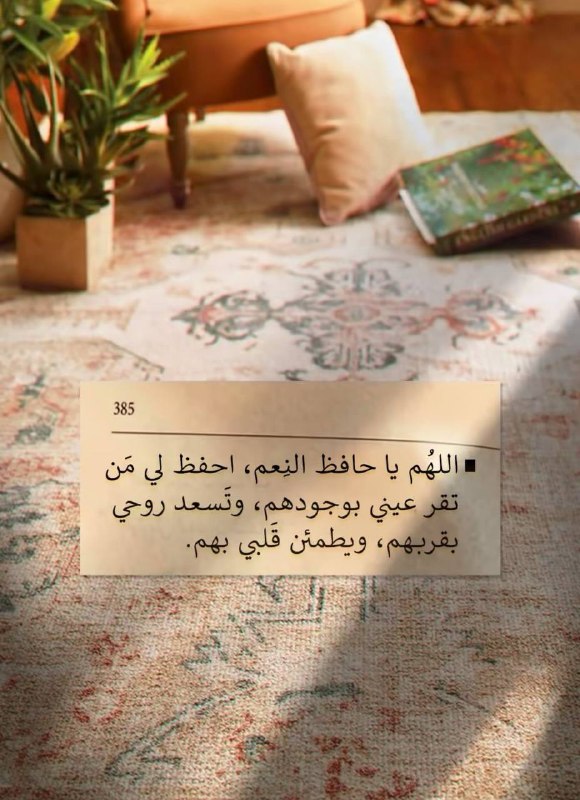 385
■ اللهُم يا حافظ النِعم، احفظ لي مَن
تقر عيني بوجودهم، وتَسعد روحي
بقربهم، ويطمئن قَلبي بهم.